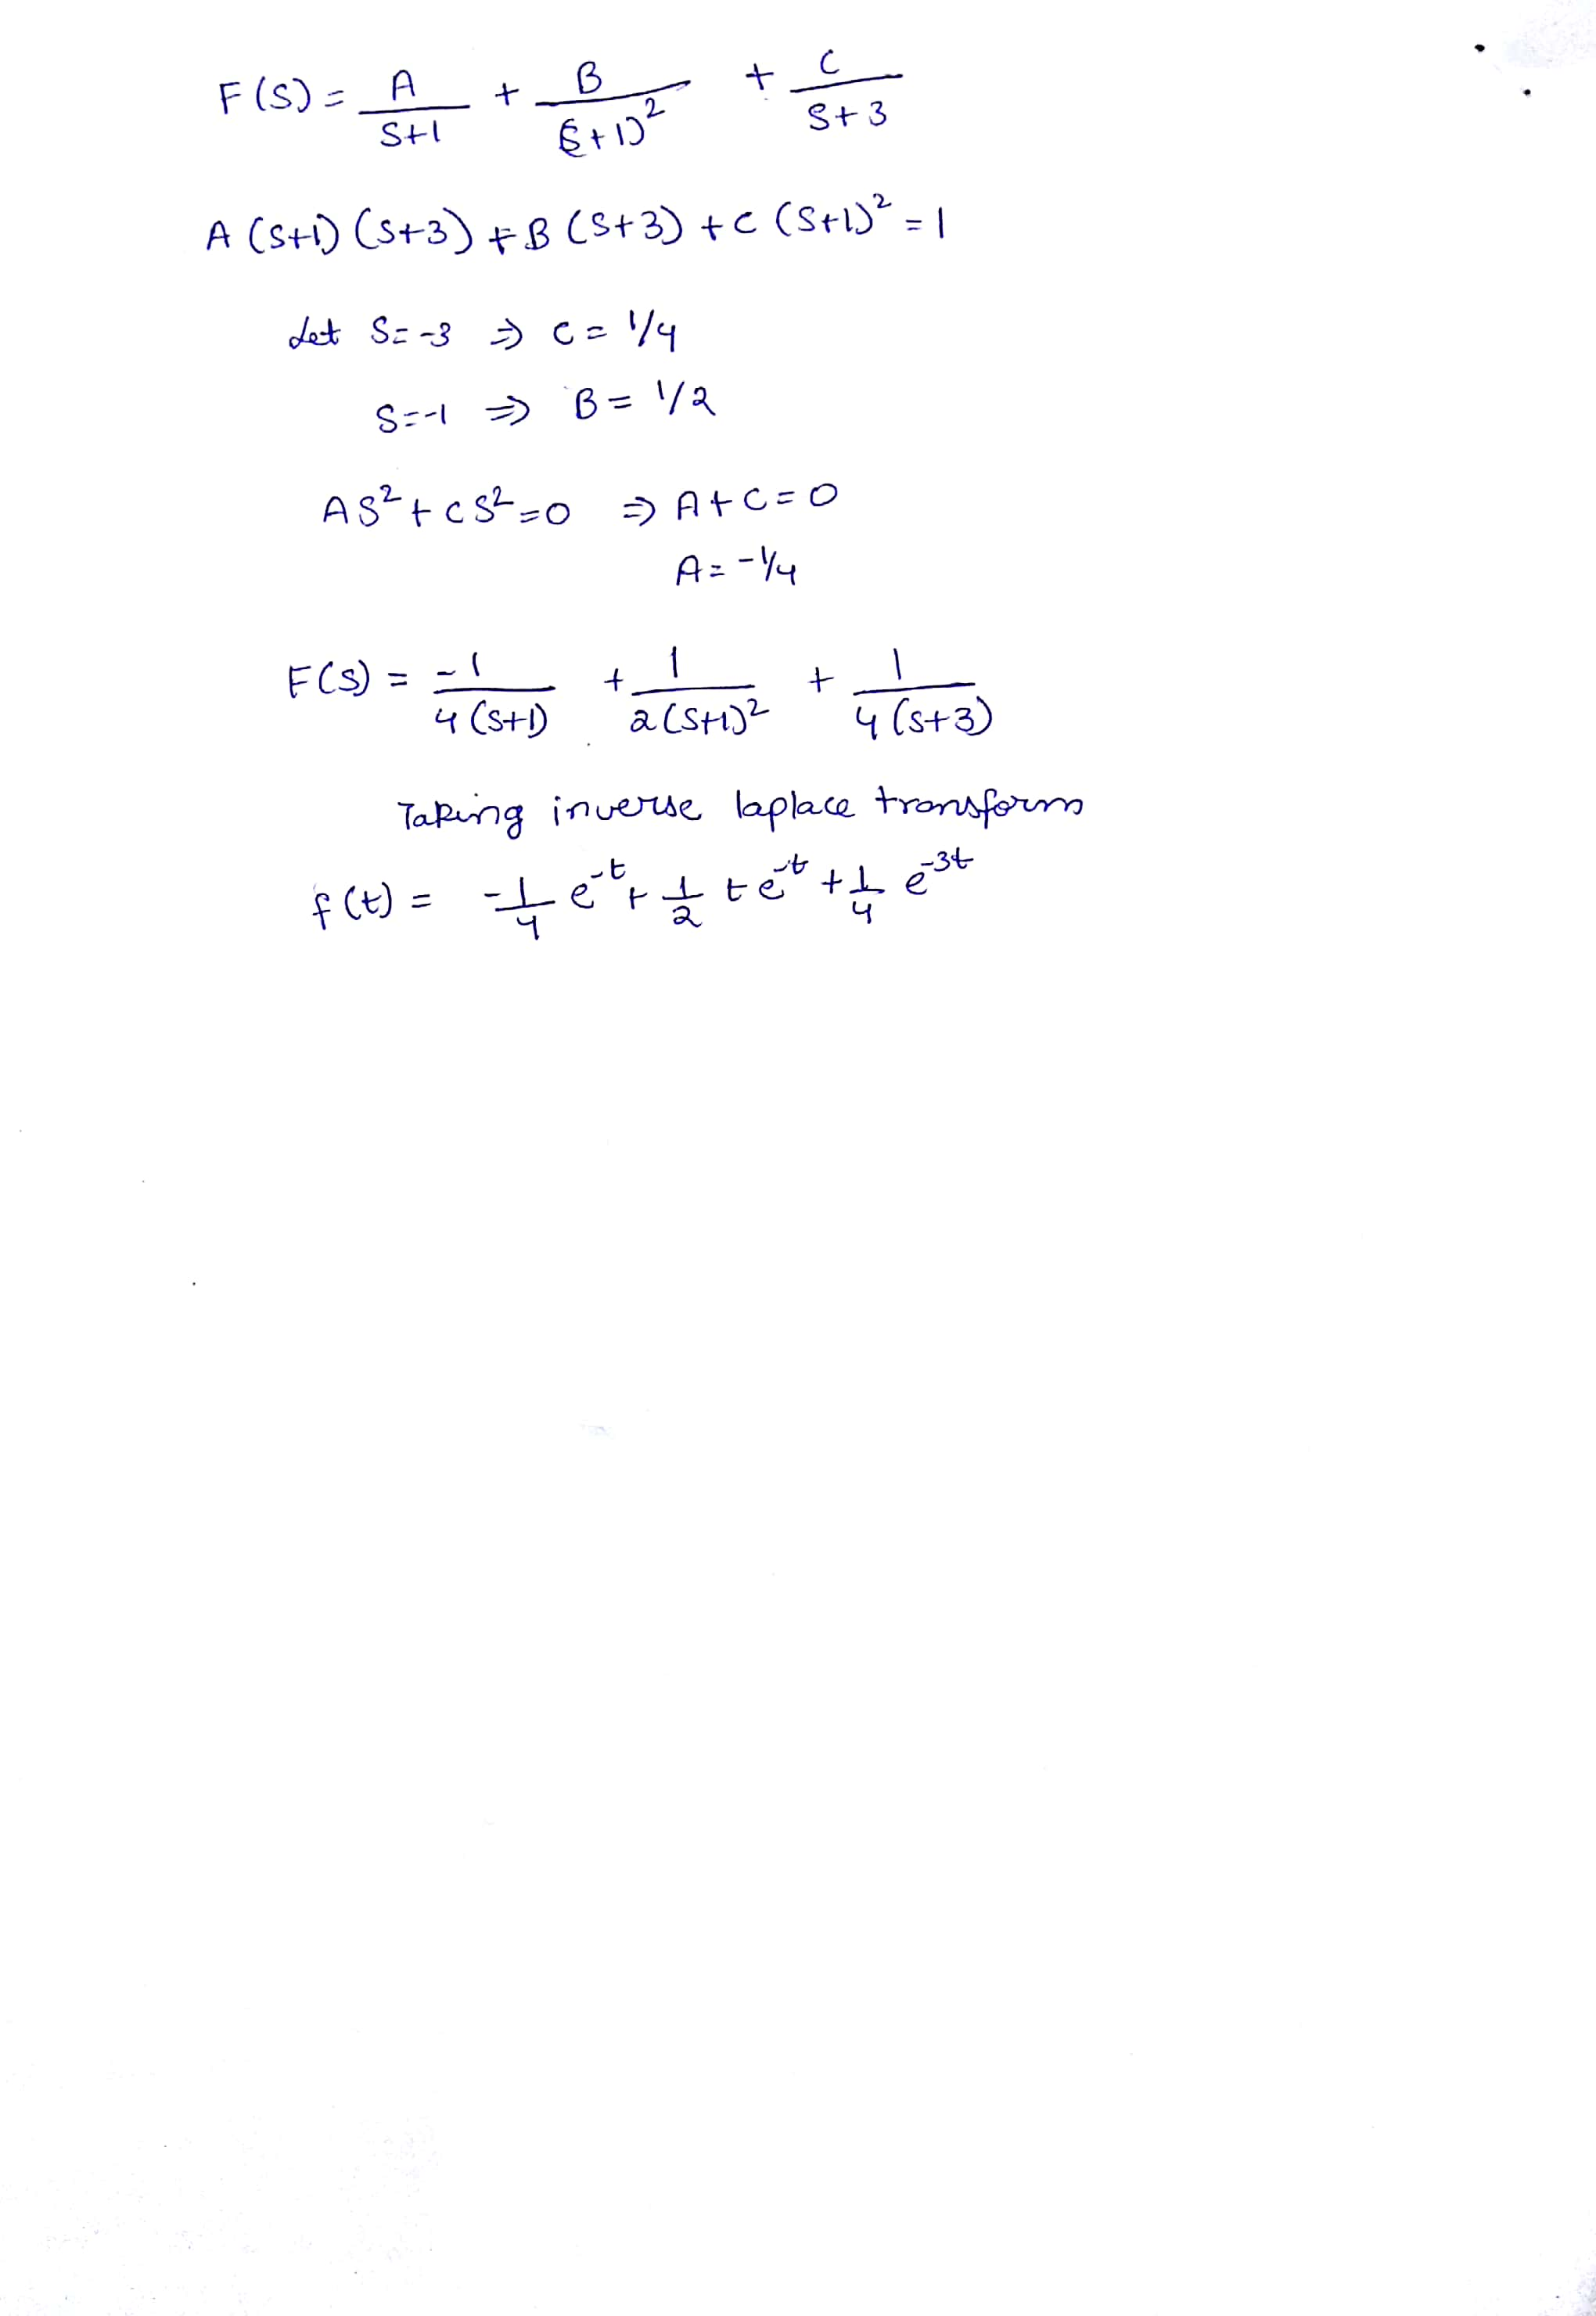 F(S) = A/(S+1) + B/(S+1)² + C/(S+3)
A (S+1) (S+3) + B (S+3) + C (S+1)² = 1
Let S = -3 ⇒ C = 1/4
S = -1 ⇒ B = 1/2
AS² + CS² = 0 ⇒ A + C = 0
A = -1/4
F(S) = -1/4(S+1) + 1/2(S+1)² + 1/4(S+3)
Taking inverse laplace transform
f(t) = -1/4 e^-t + 1/2 t e^-t + 1/4 e^-3t